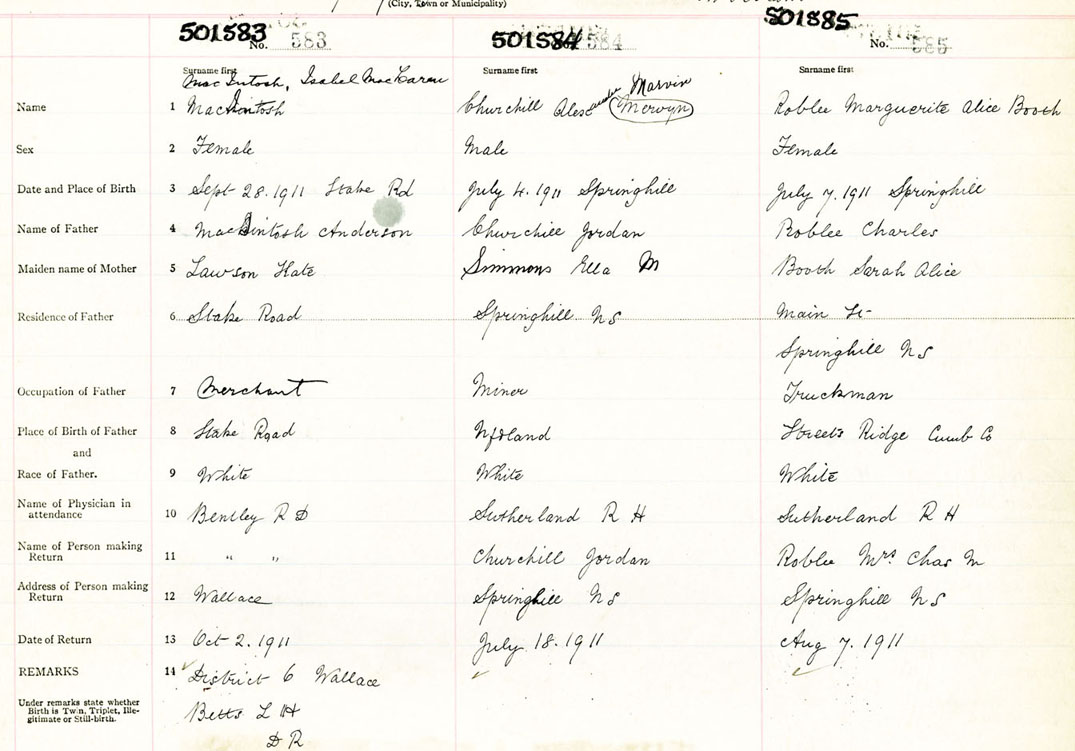 (City, Town or Municipality)
501583 501584 501585
No. 583 584 No. 585
Surname first Surname first Surname first
MacIntosh, Isabel MacLaren Marvin
Name 1 MacIntosh Churchill Alexander Mervyn Roblee Marguerite Alice Booth
Sex 2 Female Male Female
Date and Place of Birth 3 Sept 28.1911 Stake Rd July 4.1911 Springhill July 7.1911 Springhill
Name of Father 4 MacIntosh Anderson Churchill Jordan Roblee Charles
Maiden name of Mother 5 Lawson Kate Simmons Ella M Booth Sarah Alice
Residence of Father 6 Stake Road Springhill NS Main St
Springhill NS
Occupation of Father 7 Merchant Miner Truckman
Place of Birth of Father 8 Stake Road Nfdland Streets Ridge Cumb Co
and
Race of Father. 9 White White White
Name of Physician in attendance 10 Bentley R D Sutherland R H Sutherland R H
Name of Person making Return 11 " " Churchill Jordan Roblee Mrs. Chas M
Address of Person making Return 12 Wallace Springhill NS Springhill NS
Date of Return 13 Oct 2.1911 July 18.1911 Aug 7.1911
REMARKS 14 District 6 Wallace
Under remarks state whether Birth is Twin, Triplet, Ille-
gitimate or Still-birth. Betts L H
D R